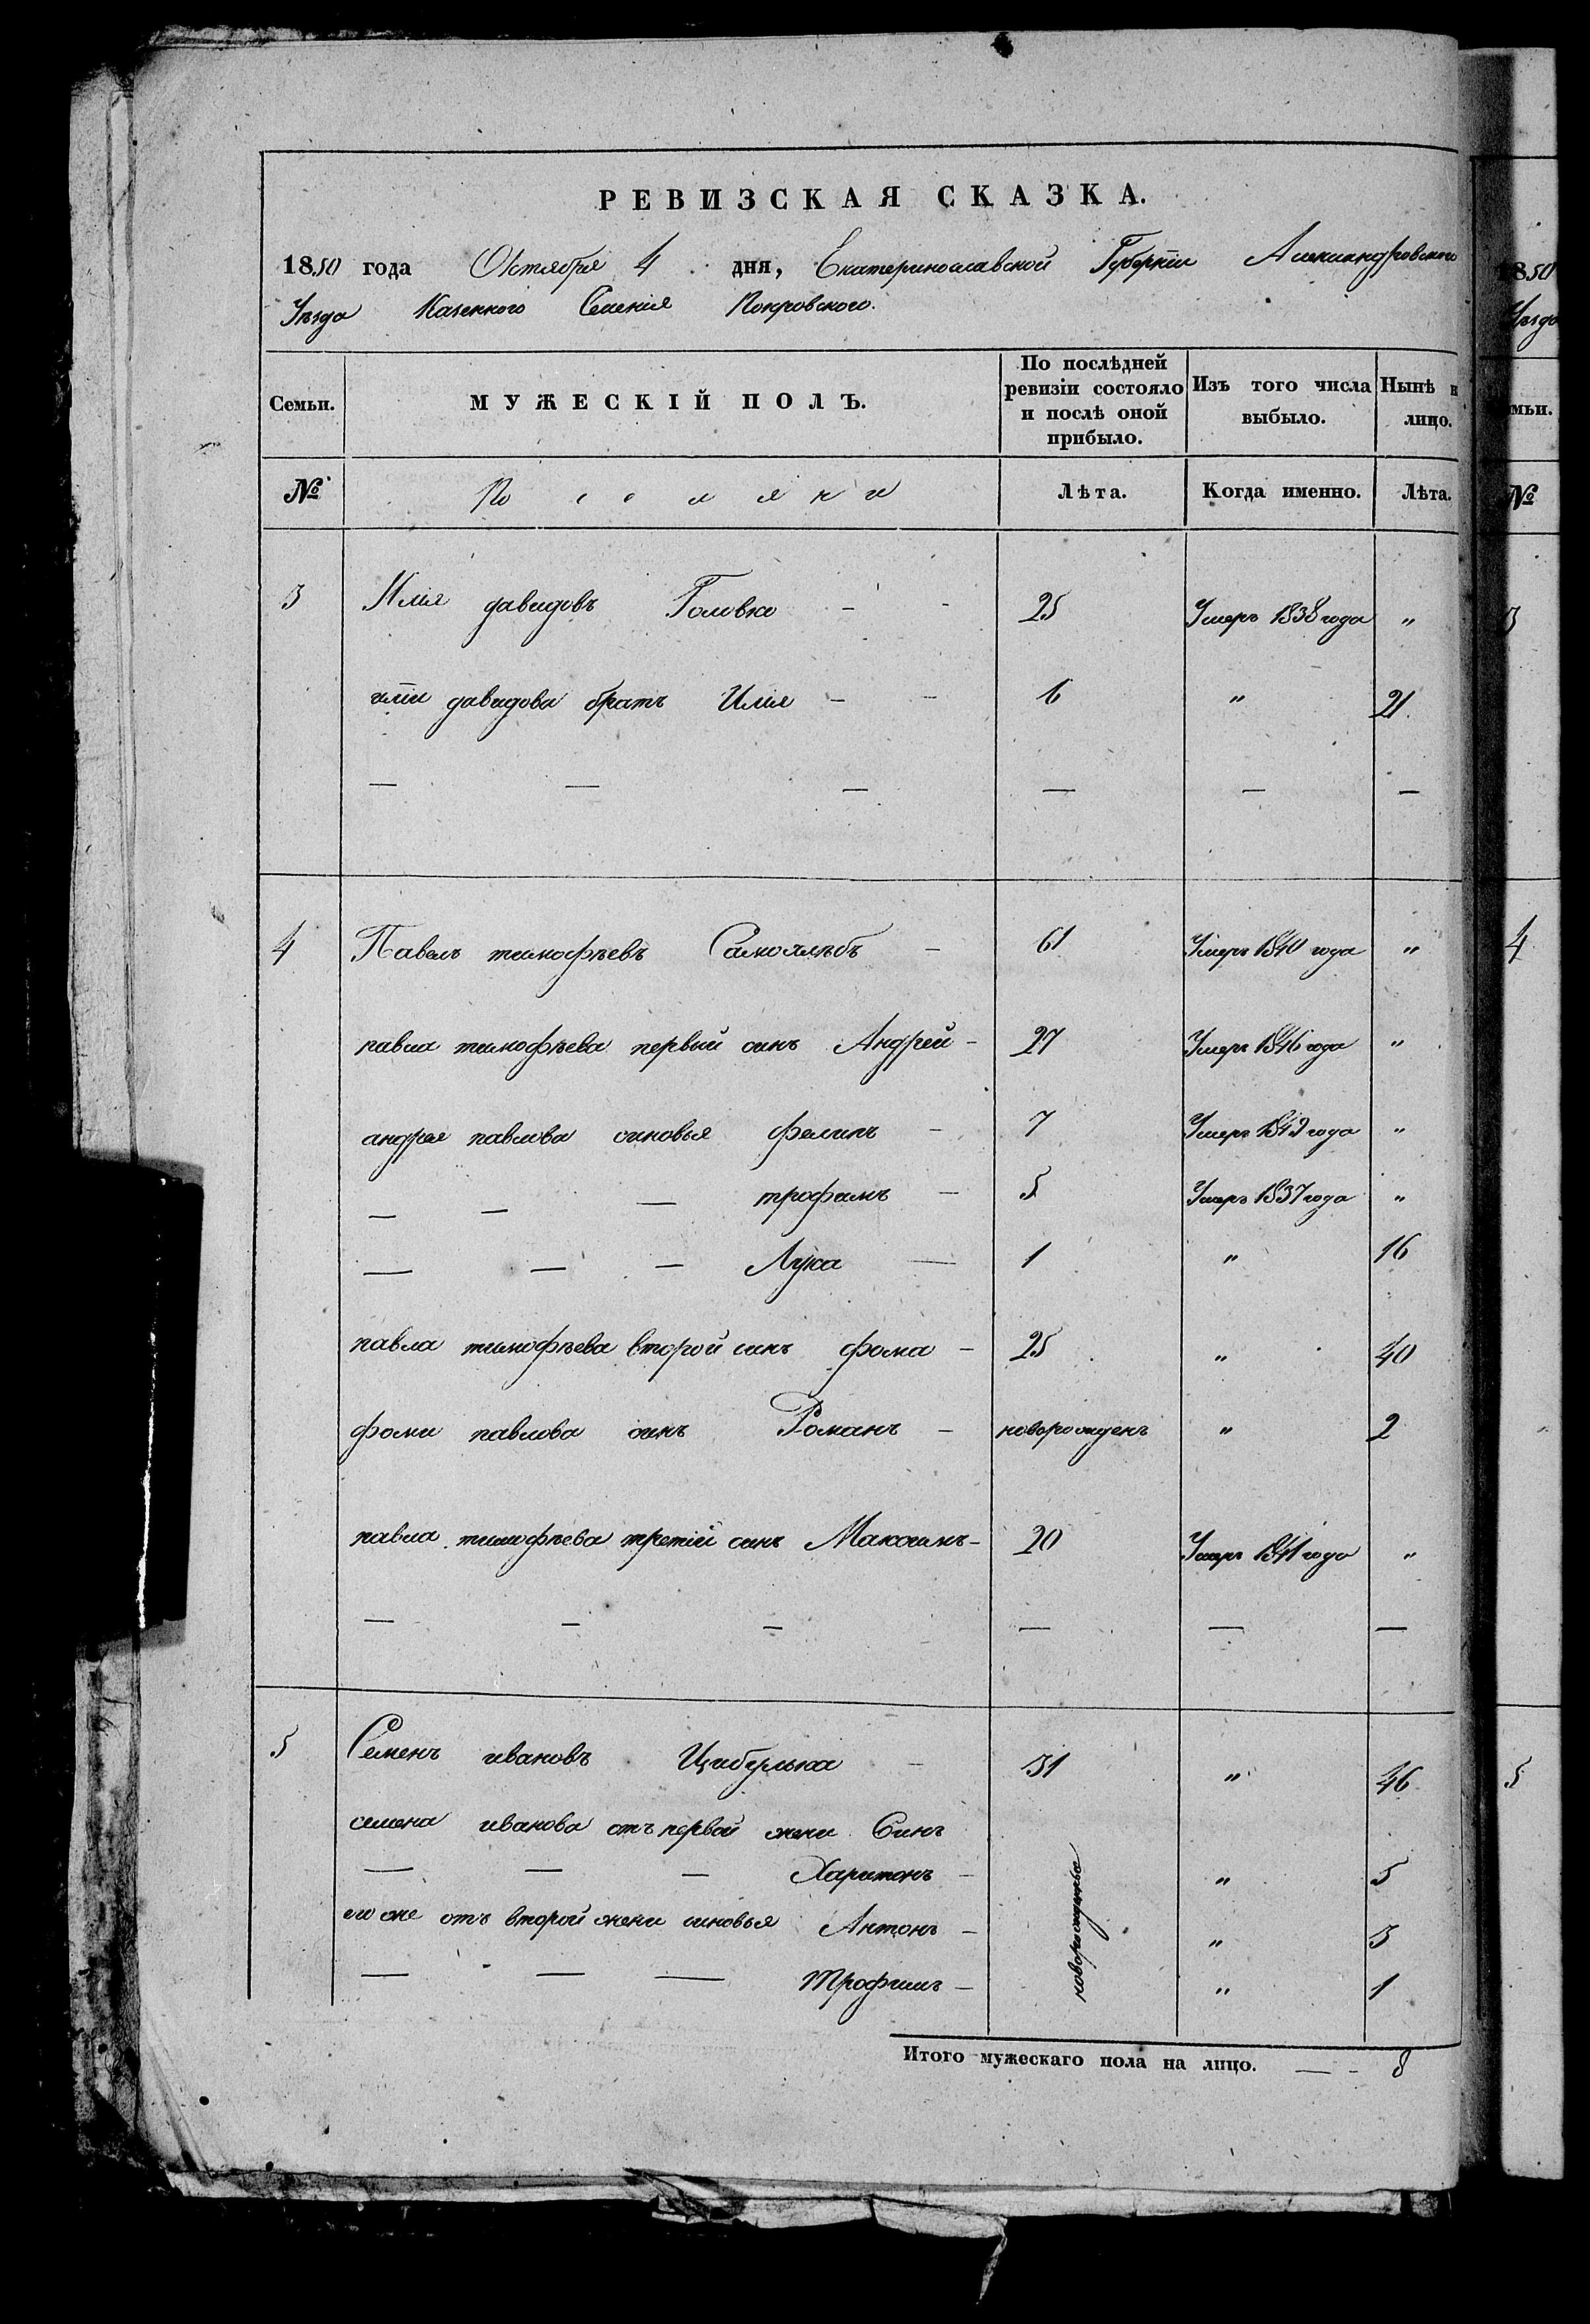 РЕВИЗСКАЯ СКАЗКА.
1850 года Октября 4 дня, Екатеринославской Губернїи Александровского
Уѣзда Казенного Селенїя Покровского.
Семьи. МУЖЕСКІЙ ПОЛЪ. По послѣдней ревизіи состояло и послѣ оной прибыло. Изъ того числа выбыло. Нынѣ н лицо.
№ По с е л я н и Лѣта. Когда именно. Лѣта.
3 Илія давидовъ Головко - - 25 Умеръ 1838 года "
иліи давидова братъ Илія - - 6 " 21.
— — — — — —
4 Павелъ тимофѣевъ Самохлѣбъ - 61 Умеръ 1840 года "
павла тимофѣева первый синъ Андрей - 27 Умеръ 1846 года "
андрея павлова синовья филипъ - 7 Умеръ 1849 года "
— — — трофимъ - 5 Умеръ 1837 года "
— — — Лука — 1 " 16
павла тимофѣева второй синъ фома - 25 " 40
фоми павлова синъ Романъ - новорожденъ " 2
павла тимофѣева третій синъ Максимъ - 20 Умеръ 1841 года "
— — — — — —
5 Семенъ ивановъ Цибулька - 31 " 46
семена иванова отъ первой жени Синъ
— — — Харитонъ - новорожденъи " 5
его же отъ второй жени синовья Антонъ - " 3
— - — — Трофимъ - " 1
Итого мужескаго пола на лицо. — - 8
1850
Уѣзда
емьи.
№
3
4
5